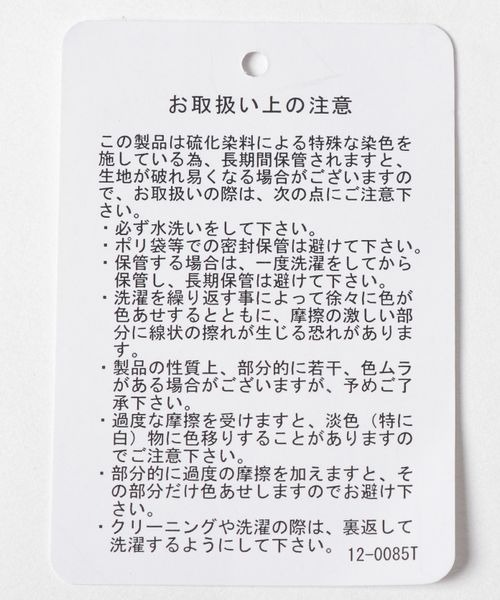 お取扱い上の注意
この製品は硫化染料による特殊な染色を
施している為、長期間保管されますと、
生地が破れ易くなる場合がございますの
で、お取扱いの際は、次の点にご注意下
さい。
・必ず水洗いをして下さい。
・ポリ袋等での密封保管は避けて下さい。
・保管する場合は、一度洗濯をしてから
保管し、長期保管は避けて下さい。
・洗濯を繰り返す事によって徐々に色が
色あせするとともに、摩擦の激しい部
分に線状の擦れが生じる恐れがありま
す。
・製品の性質上、部分的に若干、色ムラ
がある場合がございますが、予めご了
承下さい。
・過度な摩擦を受けますと、淡色（特に
白）物に色移りすることがありますの
でご注意下さい。
・部分的に過度の摩擦を加えますと、そ
の部分だけ色あせしますのでお避け下
さい。
・クリーニングや洗濯の際は、裏返して
洗濯するようにして下さい。 12-0085T